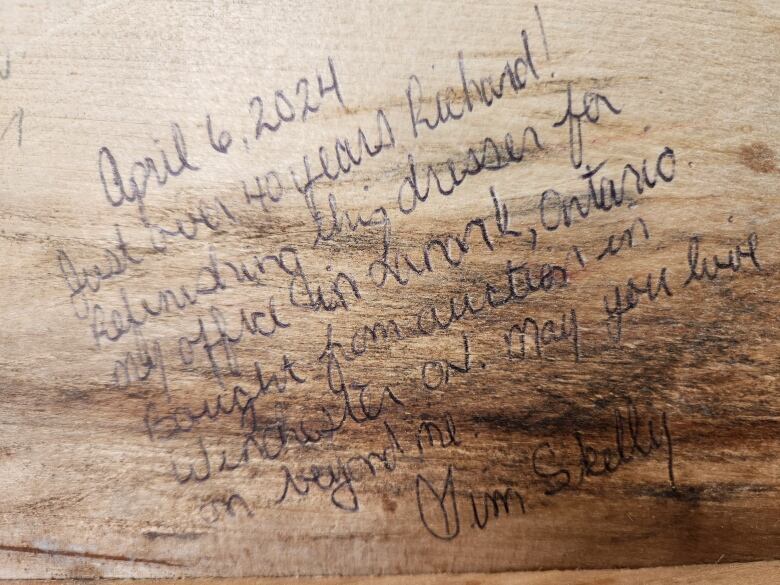 April 6, 2024
Just over 40 years Richard!
Refinishing this dresser for
my office in Lanark, Ontario.
Bought from auction in
Winchester ON. May you live
on beyond me.
Skelly